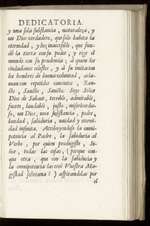 DEDICATORIA.
y una sola substancia, naturaleza, y
un Dios verdadero, que solo habita la
eternidad, y luz inaccesible, que fun-
dò la tierra con su poder, y rige el
mundo con su prudencia; à quien los
ciudadanos celestes, y à su imitacion
los hombres de buena voluntad, acla-
man con repetidos canticos, San-
cto, Sancto, Sancto, Señor
Dios de Sabaot, terrible, admirable,
fuerte, laudable, justo, misericordio-
so, un Dios, una substancia, poder,
bondad, sabiduria, unidad, y eterni-
dad infinita. Atribuyendose la omni-
potencia al Padre, la sabiduria al
Verbo, por quien produxisteis,
todas las cosas, (porque
otra, que con la sabiduria y
la omnipotencia las criò Vuestra Ma-
gestad